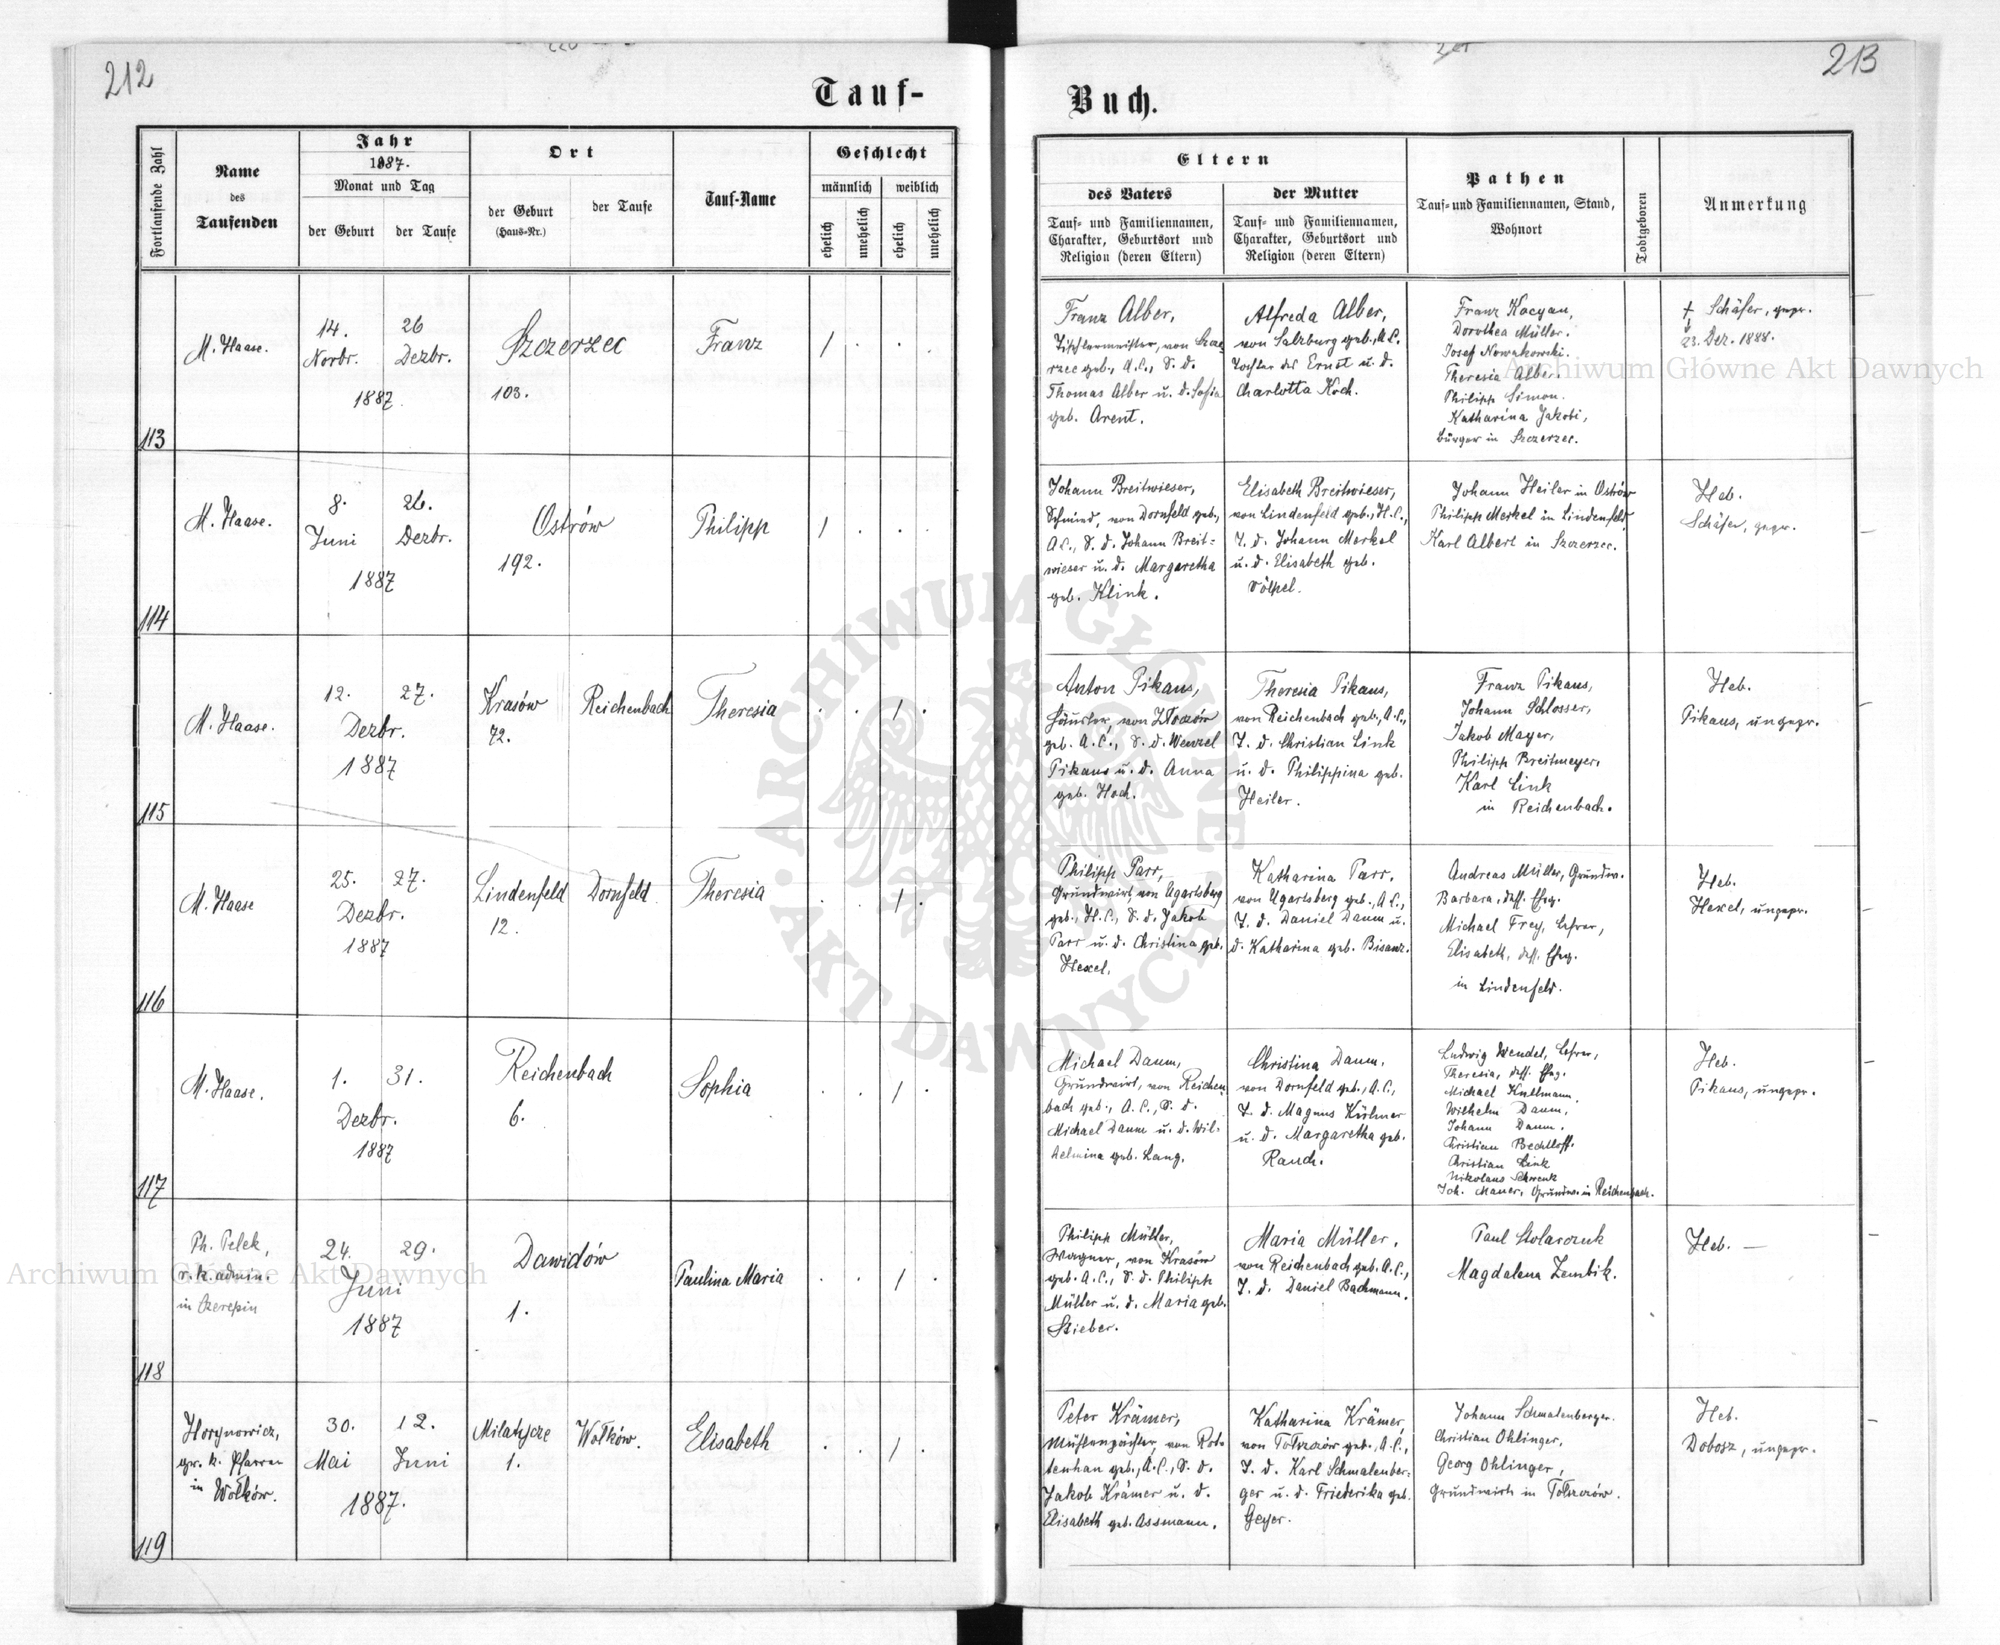 212
213
Tauf-
Buch.
Fortlaufende Zahl
Name
des
Taufenden
Jahr
1887.
Monat und Tag
der Geburt
der Taufe
Ort
der Geburt
(Haus-Nr.)
der Taufe
Tauf-Name
Geschlecht
männlich
weiblich
ehelich
unehelich
ehelich
unehelich
Eltern
des Vaters
Tauf- und Familiennamen,
Charakter, Geburtsort und
Religion (deren Eltern)
der Mutter
Tauf- und Familiennamen,
Charakter, Geburtsort und
Religion (deren Eltern)
Pathen
Tauf- und Familiennamen, Stand,
Wohnort
Todtgeboren
Anmerkung
113
M. Haase.
14.
Novbr.
26
Dezbr.
1887.
Szczerzec
103.
Franz
/ . . .
Franz Alber,
Tischlermeister, von Szcze-
rzec geb., A.C., S. d.
Thomas Alber u. d. Sofia
geb. Arent.
Alfreda Alber,
von Salzburg geb., A.C.
Tochter des Ernst u. d.
Charlotta Koch.
Franz Kacyan,
Dorothea Müller.
Josef Nowakowski.
Theresia Alber.
Philipp Simon.
Katharina Jakobi,
Bürger in Szczerzec.
† Schäfer, gepr.
23. Dez. 1888.
114
M. Haase.
8.
Juni
26.
Dezbr.
1887
Ostrów
192.
Philipp
/ . . .
Johann Breitwieser,
Schmied, von Dornfeld geb.,
A.C., S. d. Johann Breit-
wieser u. d. Margaretha
geb. Klink.
Elisabeth Breitwieser,
von Lindenfeld geb., H.C.,
T. d. Johann Merkel
u. d. Elisabeth geb.
Völpel.
Johann Heiler in Ostrów
Philipp Merkel in Lindenfeld
Karl Albert in Szczerzec.
Heb.
Schäfer, gepr.
115
M. Haase.
12.
27.
Dezbr.
1887
Krasów
72.
Reichenbach
Theresia
. . / .
Anton Pikaus,
Häusler, von Złoczów
geb. A.C., S. d. Wenzel
Pikaus u. d. Anna
geb. Hoch.
Theresia Pikaus,
von Reichenbach geb., A.C.,
T. d. Christian Link
u. d. Philippina geb.
Heiler.
Franz Pikaus,
Johann Schlosser,
Jakob Mayer,
Philipp Breitmeyer,
Karl Link
in Reichenbach.
Heb.
Pikaus, ungepr.
116
M. Haase
25.
27.
Dezbr.
1887
Lindenfeld
12.
Dornfeld
Theresia
. . / .
Philipp Parr,
Grundwirt, von Ugartsberg
geb., H.C., S. d. Jakob
Parr u. d. Christina geb.
Hexel.
Katharina Parr,
von Ugartsberg geb., A.C.,
T. d. Daniel Daum u.
d. Katharina geb. Bisanz.
Andreas Müller, Grundw.
Barbara, dess. Eheg.
Michael Frey, Lehrer,
Elisabeth, dess. Eheg.
in Lindenfeld.
Heb.
Hexel, ungepr.
117
M. Haase.
1.
31.
Dezbr.
1887
Reichenbach
6.
Sophia
. . / .
Michael Daum,
Grundwirt, von Reichen-
bach geb., A.C., S. d.
Michael Daum u. d. Wil-
helmina geb. Lang.
Christina Daum,
von Dornfeld geb., A.C.,
T. d. Magnus Kühner
u. d. Margaretha geb.
Rauch.
Ludwig Wendel, Lehrer,
Theresia, dess. Eheg.
Michael Kullmann.
Wilhelm Daum,
Johann Daum.
Christian Bechtloff.
Christian Link
Nikolaus Schwenk
Joh. Mauer, Grundw. in Reichenbach.
Heb.
Pikaus, ungepr.
118
Ph. Pelek,
r. k. admin.
in Czerepin
24.
29.
Juni
1887
Dawidów
1.
Paulina Maria
. . / .
Philipp Müller,
Wagner, von Krasów
geb. A.C., S. d. Philipp
Müller u. d. Maria geb.
Stieber.
Maria Müller,
von Reichenbach geb. A.C.,
T. d. Daniel Bachmann.
Paul Stolarczuk
Magdalena Zembik.
Heb. —
119
Horynowicz,
gr. k. Pfarrer
in Wołków.
30.
Mai
12.
Juni
1887.
Milatycze
1.
Wołków.
Elisabeth
. . / .
Peter Krämer,
Mühlenpächter, von Rot-
tenhan geb., A.C., S. d.
Jakob Krämer u. d.
Elisabeth geb. Assmann.
Katharina Krämer,
von Tołszczów geb., A.C.,
T. d. Karl Schmalenber-
ger u. d. Friederika geb.
Geyer.
Johann Schmalenberger.
Christian Ohlinger,
Georg Ohlinger,
Grundwirth in Tołszczów.
Heb.
Dobosz, ungepr.
Archiwum Główne Akt Dawnych
Archiwum Główne Akt Dawnych
ARCHIWUM GŁÓWNE • AKT DAWNYCH •